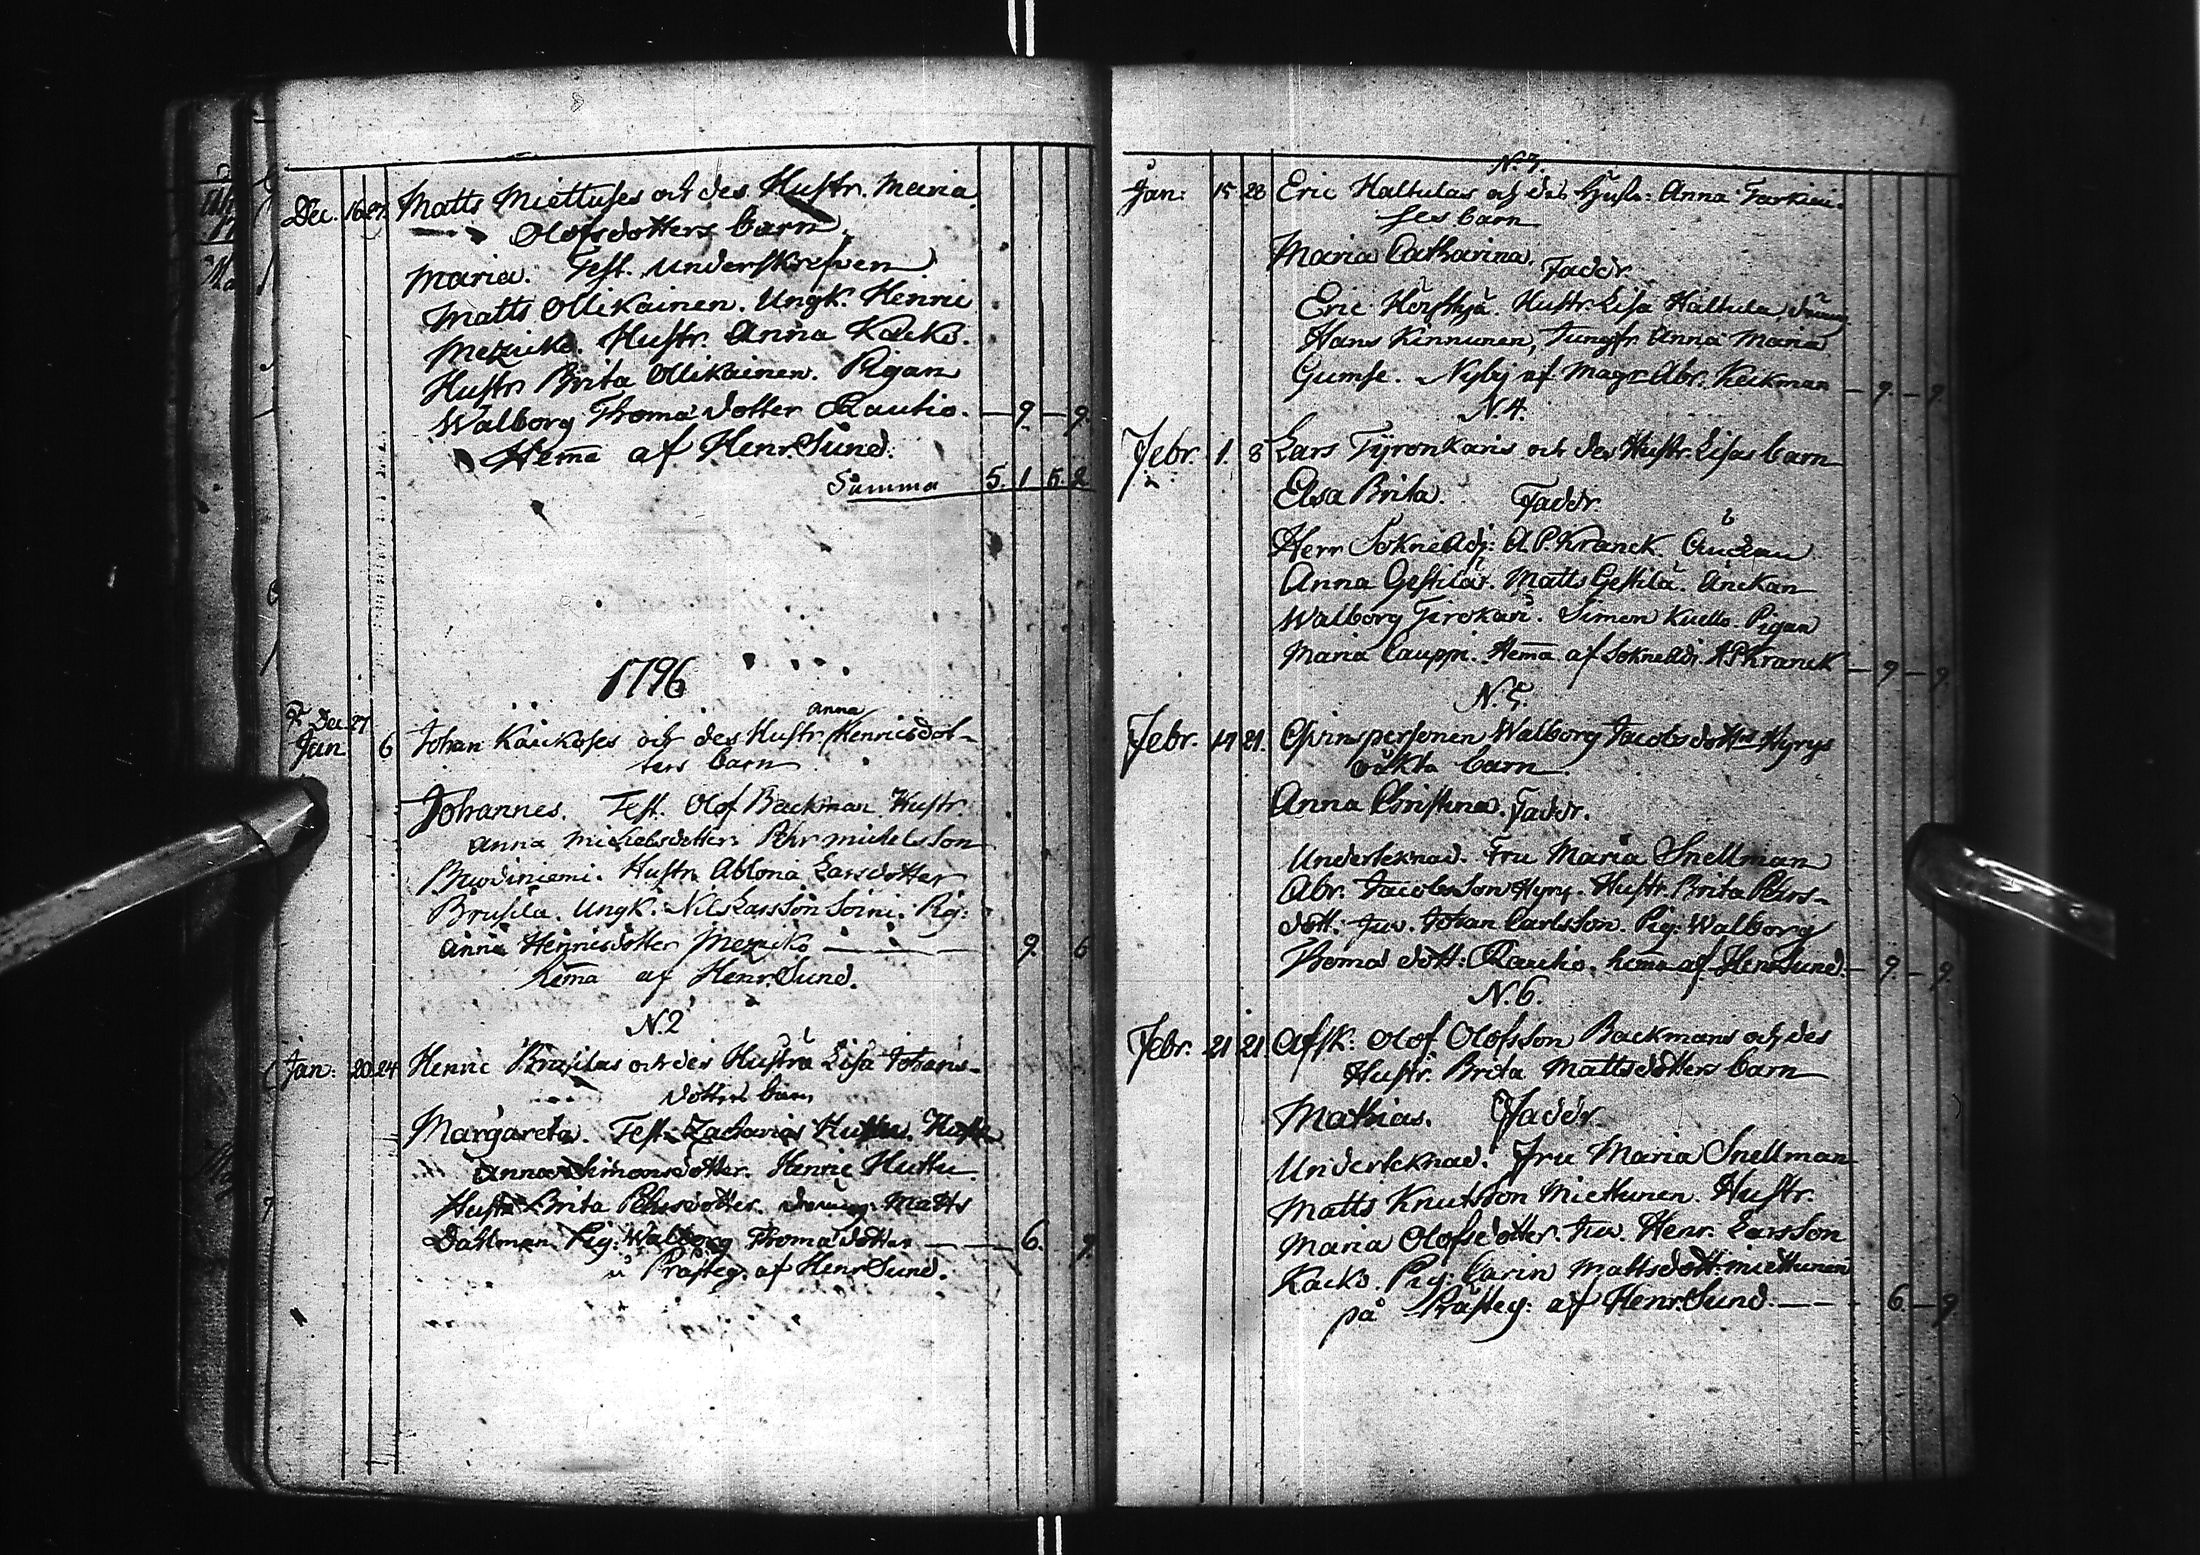 Dec. 16 27 Matts Miettuses och des Hustr. Maria
Olofsdotters barn.
Maria. Test. Underskrefven
Matts Ollikainen. Ungk. Henric
Mezuiko. Hustr. Anna Kacko.
Hustr. Brita Ollikainen. Pigan
Walborg Thomadotter Rautio. — 9 — 9
Hema af Henr. Sund.
Summa 5. 1 5. 2
1796
F. Dec. 27
anna
Jan. 6 Johan Kaickoses och des Hustr. Henricsdot-
ters barn
Johannes. Test. Olof Backman. Hustr.
Anna Michelsdotter. Pehr Michelsson
Hustr. Larsdotter
Brusila. Ungk. Nils Larsson Soini. Pig:
Anna Henricsdotter Mezuiko — — 9. 6
hema af Henr. Sund.
N. 2
Jan: 20 24 Henric Brusilas och des Hustru Lisa Johans-
dotters barn
Margareta. Test. Zacharias Huttu. Hustr.
Anna Simonsdotter. Henric Huttu.
Hustr. Brita Pehrsdotter. Matts
Dahlman. Pig: Walborg Thomadotter — — 6. 9
i Prästeg. af Henr Sund.
N. 3.
Jan: 15 28 Eric Haltulas och des Hustr: Anna Tarkiai-
ses barn
Maria Catharina. Faddr.
Eric Hustr. Lisa Haltula, dräng
Hans Kinnunen, Jungfr. Anna Maria
Gumse. Nyby af Magr Abr. Keckman — 9. — 9
N. 4.
Febr. 1. 8 Lars Tyronkaris och des Hustr. Lisas barn
Elsa Brita. Faddr.
Herr Sokne Adj: A. P. Kranck. Änckan
Anna Gestilär. Matts Gestilä. Änckan
Walborg Tirokari. Simon Kuello. Pigan
Maria Cauppi. Hema af SokneAdj. A P Kranck — 9 — 9
N. 5.
Febr. 14 21. Qvinspersonen Walborg Jacobsdotters Hyrys
oäkta barn.
Anna Christina. Faddr.
Underteknad. Fru Maria Snellman
Abr. Jacobsson Hyry. Hustr. Brita Pehrs-
dott. Johan Carlsson. Pig: Walborg
Thomadott: Rautio. hema af Henr Sund. — 9 — 9
N. 6.
Febr. 21 21 Afsk: Olof Olofsson Backmans och des
Hustr. Brita Mattsdotters barn
Mathias. Faddr.
Underteknad. Fru Maria Snellman
Matts Knutsson Miettunen. Hustr.
Maria Olofsdotter. Henr. Larsson
Kacko. Pig: Carin Mattsdott: Miettunen
på Prästeg: af Henr. Sund. — — 6 — 9